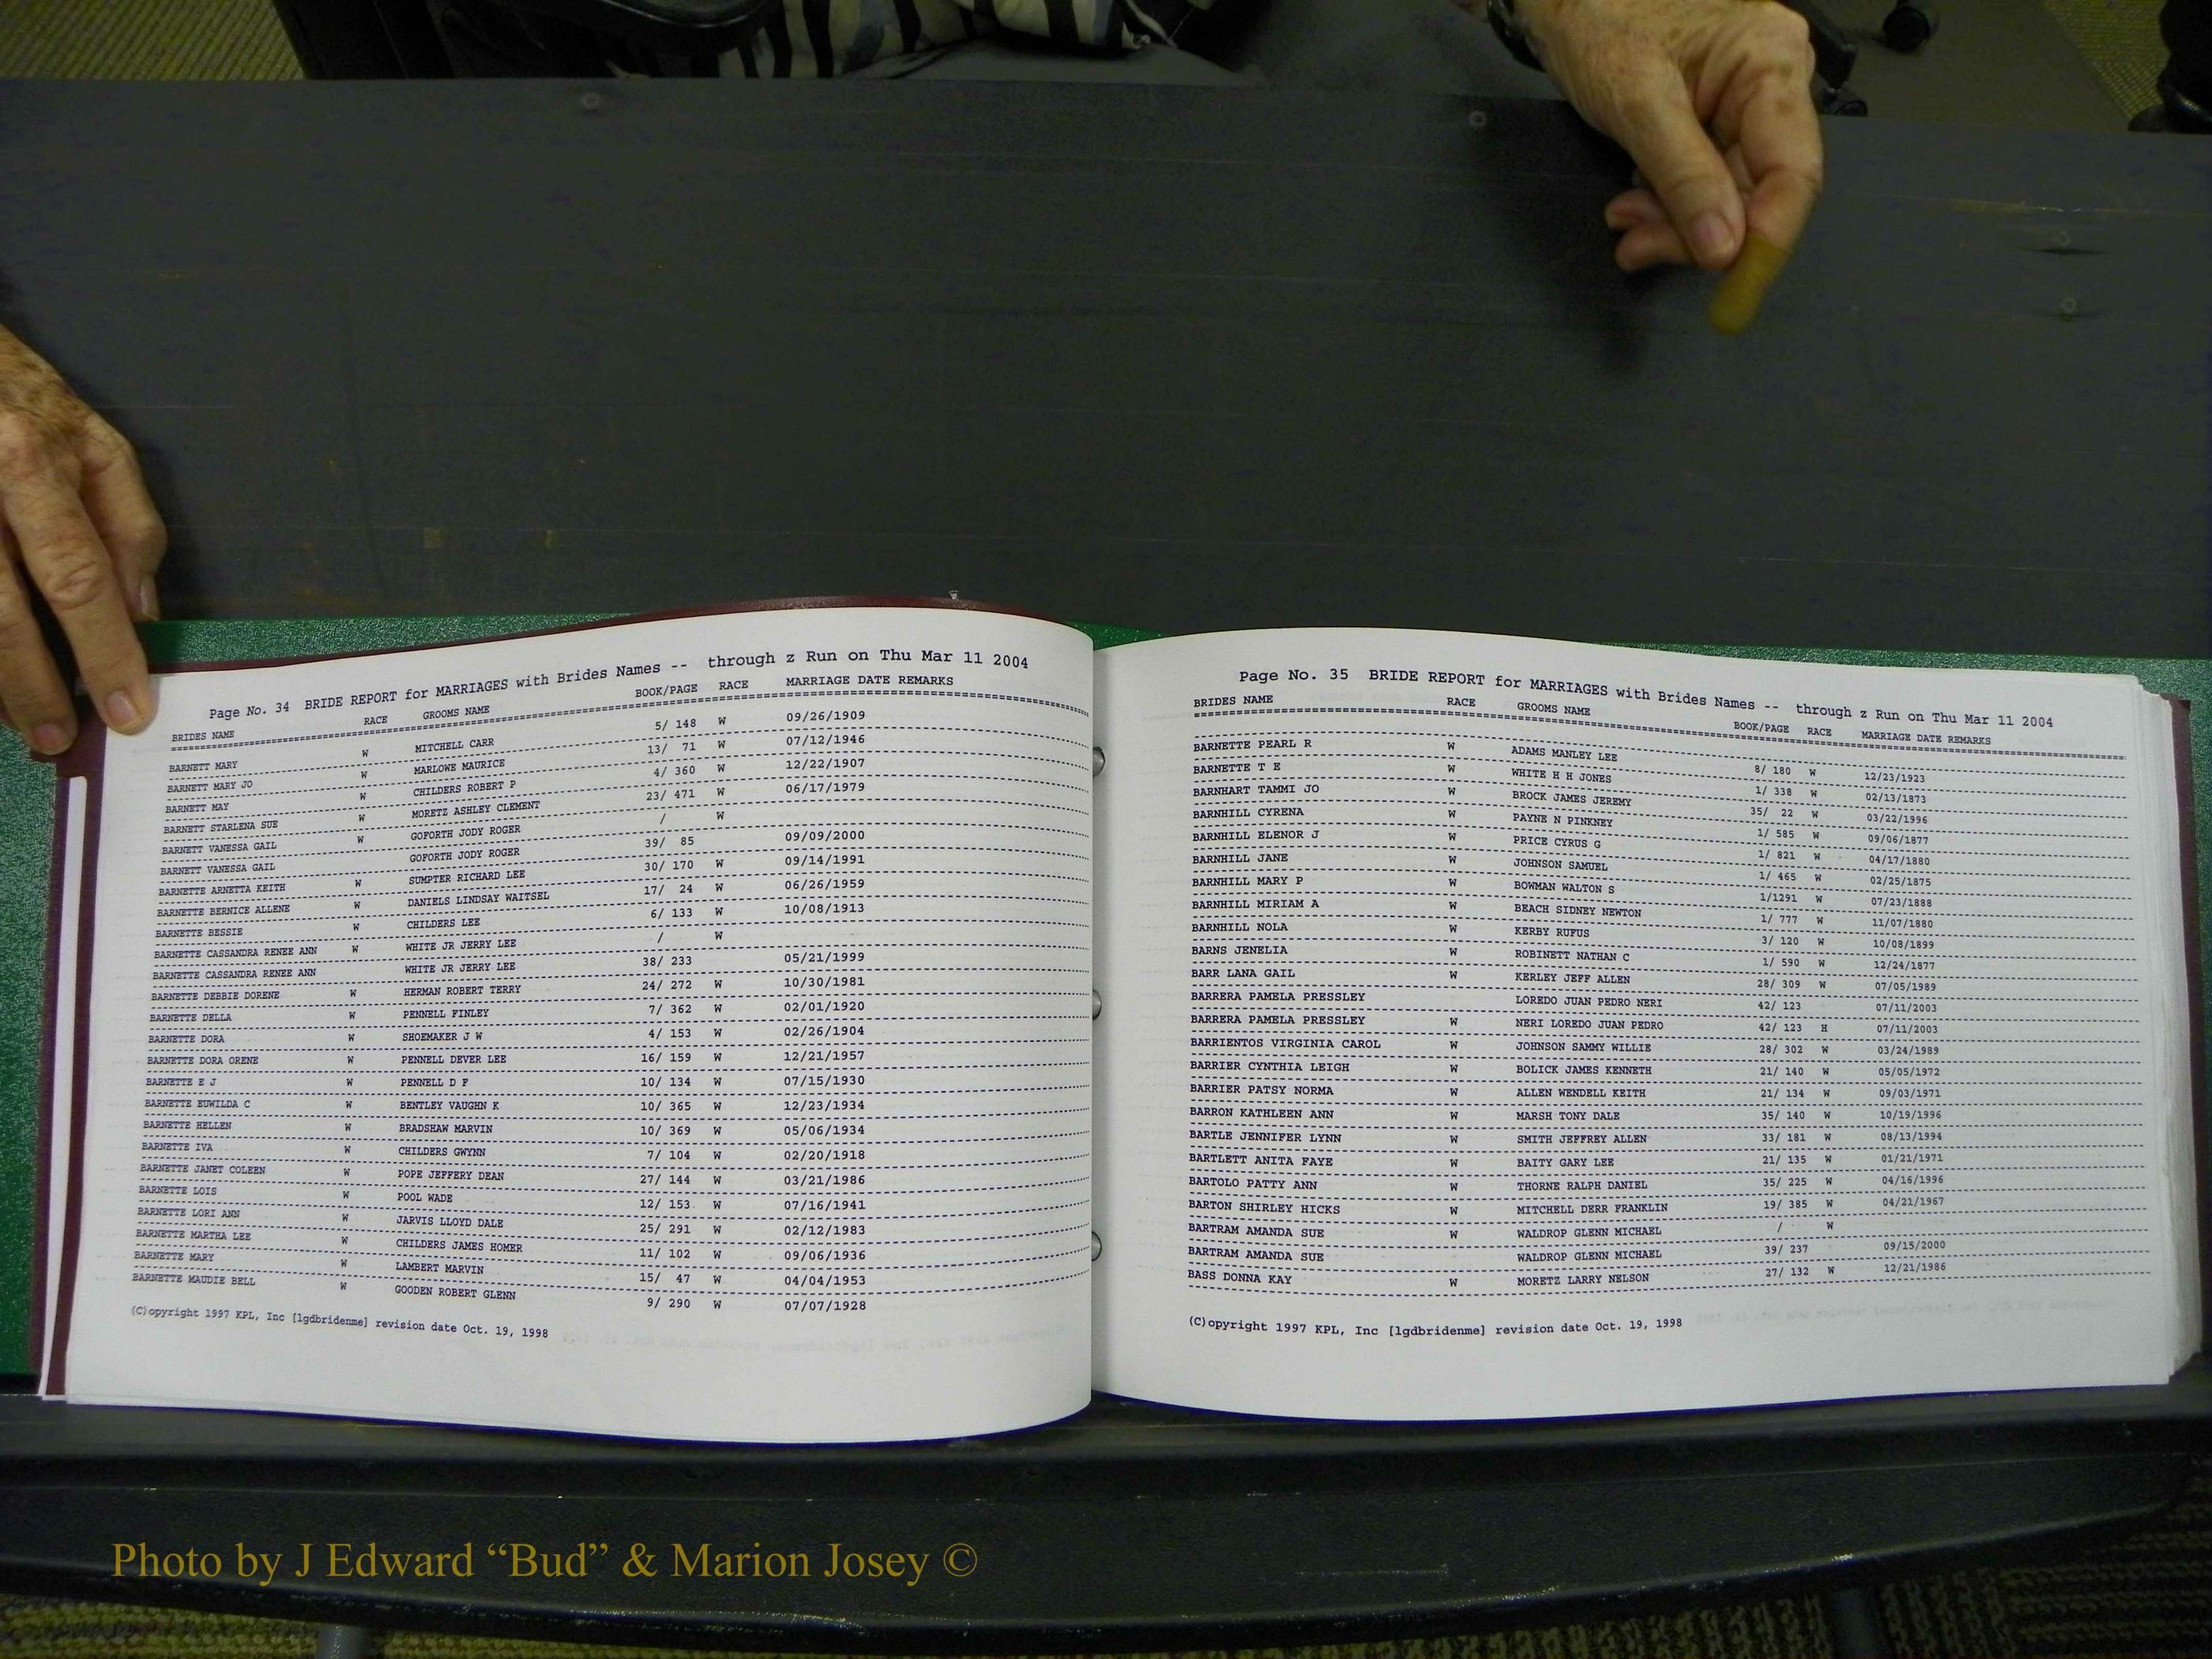 Page No. 34 BRIDE REPORT for MARRIAGES with Brides Names -- through z Run on Thu Mar 11 2004
BRIDES NAME RACE GROOMS NAME BOOK/PAGE RACE MARRIAGE DATE REMARKS
BARNETT MARY W MITCHELL CARR 5/ 148 W 09/26/1909
BARNETT MARY JO W MARLOWE MAURICE 13/ 71 W 07/12/1946
BARNETT MAY W CHILDERS ROBERT P 4/ 360 W 12/22/1907
BARNETT STARLENA SUE W MORETZ ASHLEY CLEMENT 23/ 471 W 06/17/1979
BARNETT VANESSA GAIL W GOFORTH JODY ROGER / W
BARNETT VANESSA GAIL GOFORTH JODY ROGER 39/ 85 09/09/2000
BARNETTE ARNETTA KEITH W SUMPTER RICHARD LEE 30/ 170 W 09/14/1991
BARNETTE BERNICE ALLENE W DANIELS LINDSAY WAITSEL 17/ 24 W 06/26/1959
BARNETTE BESSIE W CHILDERS LEE 6/ 133 W 10/08/1913
BARNETTE CASSANDRA RENEE ANN W WHITE JR JERRY LEE / W
BARNETTE CASSANDRA RENEE ANN WHITE JR JERRY LEE 38/ 233 05/21/1999
BARNETTE DEBBIE DORENE W HERMAN ROBERT TERRY 24/ 272 W 10/30/1981
BARNETTE DELLA W PENNELL FINLEY 7/ 362 W 02/01/1920
BARNETTE DORA W SHOEMAKER J W 4/ 153 W 02/26/1904
BARNETTE DORA ORENE W PENNELL DEVER LEE 16/ 159 W 12/21/1957
BARNETTE E J W PENNELL D F 10/ 134 W 07/15/1930
BARNETTE EUWILDA C W BENTLEY VAUGHN K 10/ 365 W 12/23/1934
BARNETTE HELLEN W BRADSHAW MARVIN 10/ 369 W 05/06/1934
BARNETTE IVA W CHILDERS GWYNN 7/ 104 W 02/20/1918
BARNETTE JANET COLEEN W POPE JEFFERY DEAN 27/ 144 W 03/21/1986
BARNETTE LOIS W POOL WADE 12/ 153 W 07/16/1941
BARNETTE LORI ANN W JARVIS LLOYD DALE 25/ 291 W 02/12/1983
BARNETTE MARTHA LEE W CHILDERS JAMES HOMER 11/ 102 W 09/06/1936
BARNETTE MARY W LAMBERT MARVIN 15/ 47 W 04/04/1953
BARNETTE MAUDIE BELL W GOODEN ROBERT GLENN 9/ 290 W 07/07/1928
(C)opyright 1997 KPL, Inc [lgdbridenme] revision date Oct. 19, 1998
Page No. 35 BRIDE REPORT for MARRIAGES with Brides Names -- through z Run on Thu Mar 11 2004
BRIDES NAME RACE GROOMS NAME BOOK/PAGE RACE MARRIAGE DATE REMARKS
BARNETTE PEARL R W ADAMS MANLEY LEE 8/ 180 W 12/23/1923
BARNETTE T E W WHITE H H JONES 1/ 338 W 02/13/1873
BARNHART TAMMI JO W BROCK JAMES JEREMY 35/ 22 W 03/22/1996
BARNHILL CYRENA W PAYNE N PINKNEY 1/ 585 W 09/06/1877
BARNHILL ELENOR J W PRICE CYRUS G 1/ 821 W 04/17/1880
BARNHILL JANE W JOHNSON SAMUEL 1/ 465 W 02/25/1875
BARNHILL MARY P W BOWMAN WALTON S 1/1291 W 07/23/1888
BARNHILL MIRIAM A W BEACH SIDNEY NEWTON 1/ 777 W 11/07/1880
BARNHILL NOLA W KERBY RUFUS 3/ 120 W 10/08/1899
BARNS JENELIA W ROBINETT NATHAN C 1/ 590 W 12/24/1877
BARR LANA GAIL W KERLEY JEFF ALLEN 28/ 309 W 07/05/1989
BARRERA PAMELA PRESSLEY LOREDO JUAN PEDRO NERI 42/ 123 07/11/2003
BARRERA PAMELA PRESSLEY W NERI LOREDO JUAN PEDRO 42/ 123 H 07/11/2003
BARRIENTOS VIRGINIA CAROL W JOHNSON SAMMY WILLIE 28/ 302 W 03/24/1989
BARRIER CYNTHIA LEIGH W BOLICK JAMES KENNETH 21/ 140 W 05/05/1972
BARRIER PATSY NORMA W ALLEN WENDELL KEITH 21/ 134 W 09/03/1971
BARRON KATHLEEN ANN W MARSH TONY DALE 35/ 140 W 10/19/1996
BARTLE JENNIFER LYNN W SMITH JEFFREY ALLEN 33/ 181 W 08/13/1994
BARTLETT ANITA FAYE W BAITY GARY LEE 21/ 135 W 01/21/1971
BARTOLO PATTY ANN W THORNE RALPH DANIEL 35/ 225 W 04/16/1996
BARTON SHIRLEY HICKS W MITCHELL DERR FRANKLIN 19/ 385 W 04/21/1967
BARTRAM AMANDA SUE W WALDROP GLENN MICHAEL / W
BARTRAM AMANDA SUE WALDROP GLENN MICHAEL 39/ 237 09/15/2000
BASS DONNA KAY W MORETZ LARRY NELSON 27/ 132 W 12/21/1986
(C)opyright 1997 KPL, Inc [lgdbridenme] revision date Oct. 19, 1998
Photo by J Edward “Bud” & Marion Josey ©